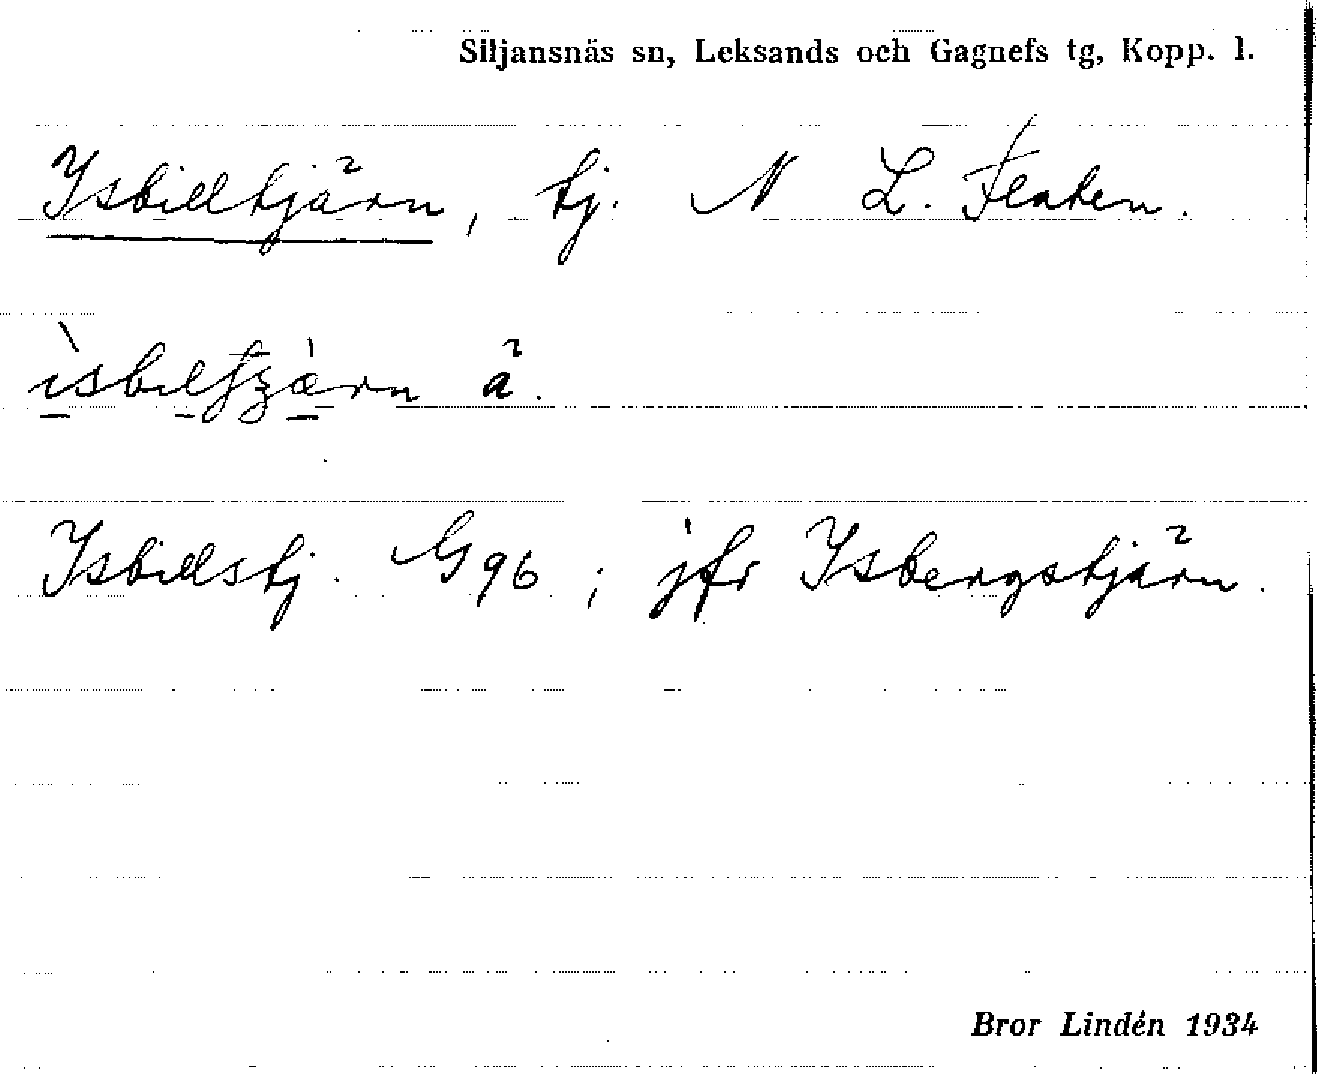 Siljansnäs sn, Leksands och Gagnefs tg, Kopp. l.
Isbilltjärn, tj. N L. Flaten.
å.
Isbillstj. G96; jfr Isbergstjärn.
Bror Lindén 1934